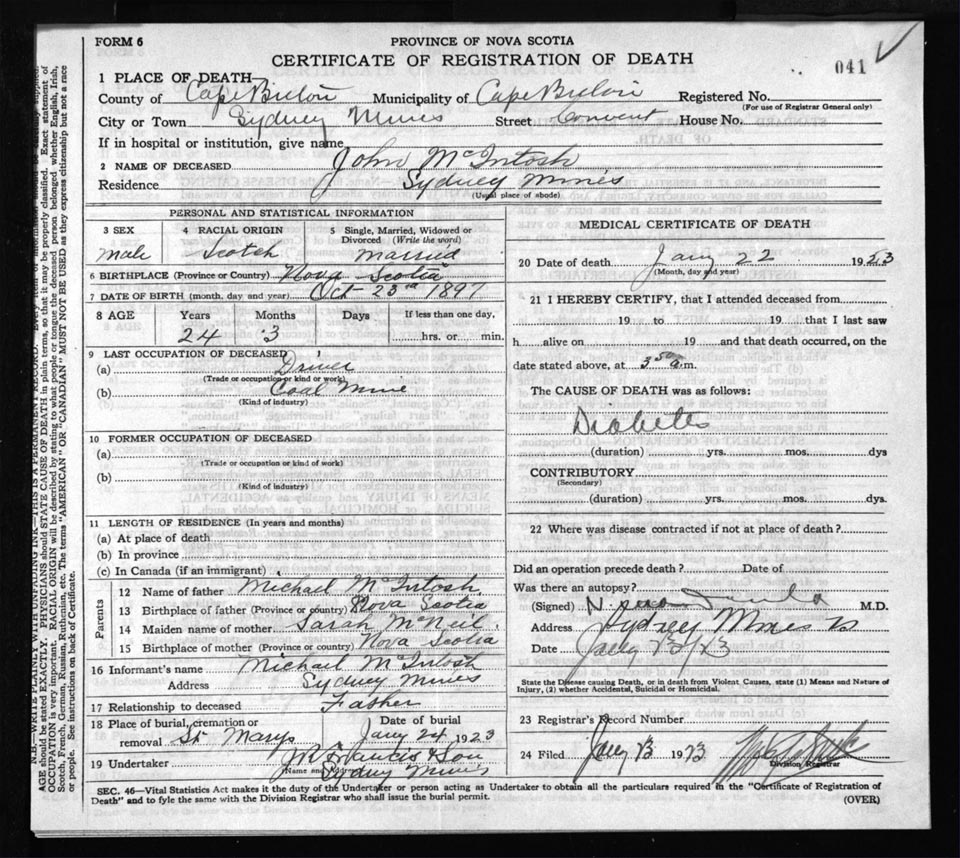 FORM 6
PROVINCE OF NOVA SCOTIA
CERTIFICATE OF REGISTRATION OF DEATH
041
1 PLACE OF DEATH
County of Cape Breton Municipality of Cape Breton Registered No.
(For use of Registrar General only)
City or Town Sydney Mines Street Convent House No.
If in hospital or institution, give name
2 NAME OF DECEASED John McIntosh
Residence Sydney Mines
(Usual place of abode)
PERSONAL AND STATISTICAL INFORMATION
3 SEX Male
4 RACIAL ORIGIN Scotch
5 Single, Married, Widowed or Divorced (Write the word) Married
6 BIRTHPLACE (Province or Country) Nova Scotia
7 DATE OF BIRTH (month, day and year) Oct 23rd 1897
8 AGE Years Months Days If less than one day,
24 3 hrs. or min.
9 LAST OCCUPATION OF DECEASED
(a) Driver
(Trade or occupation or kind or work)
(b) Coal Mine
(Kind of industry)
10 FORMER OCCUPATION OF DECEASED
(a)
(Trade or occupation or kind of work)
(b)
(Kind of industry)
11 LENGTH OF RESIDENCE (In years and months)
(a) At place of death
(b) In province
(c) In Canada (if an immigrant)
Parents
12 Name of father Michael McIntosh
13 Birthplace of father (Province or country) Nova Scotia
14 Maiden name of mother Sarah McNeil
15 Birthplace of mother (Province or country) Nova Scotia
16 Informant's name Michael McIntosh
Address Sydney Mines
17 Relationship to deceased Father
18 Place of burial, cremation or removal St Marys Date of burial Jany 24 1923
19 Undertaker & Son
(Name and Address) Sydney Mines
MEDICAL CERTIFICATE OF DEATH
20 Date of death Jany 22 1923
(Month, day and year)
21 I HEREBY CERTIFY, that I attended deceased from
19 to 19 that I last saw
h alive on 19 and that death occurred, on the
date stated above, at a.m.
The CAUSE OF DEATH was as follows:
Diabetes
(duration) yrs. mos. dys
CONTRIBUTORY
(Secondary)
(duration) yrs. mos. dys.
22 Where was disease contracted if not at place of death?
Did an operation precede death? Date of
Was there an autopsy?
(Signed) M.D.
Address Sydney Mines
Date Jany 23/23
State the Disease causing Death, or in death from Violent Causes, state (1) Means and Nature of
Injury, (2) whether Accidental, Suicidal or Homicidal.
23 Registrar's Record Number
24 Filed Jany 1923
Division Registrar
SEC. 46—Vital Statistics Act makes it the duty of the Undertaker or person acting as Undertaker to obtain all the particulars required in the "Certificate of Registration of
Death" and to fyle the same with the Division Registrar who shall issue the burial permit.
(OVER)
N.B.—WRITE PLAINLY WITH UNFADING INK—THIS IS A PERMANENT RECORD.
AGE should be stated EXACTLY. PHYSICIANS should STATE CAUSE OF DEATH in plain terms, so that it may be properly classified. Exact statement of
OCCUPATION is very important. RACIAL ORIGIN will be described by stating to what people or tongue the deceased person belonged whether English, Irish,
Scotch, French, German, Russian, Ruthenian, etc. The terms "AMERICAN" OR "CANADIAN" MUST NOT BE USED as they express citizenship but not a race
or people. See instructions on back of Certificate.